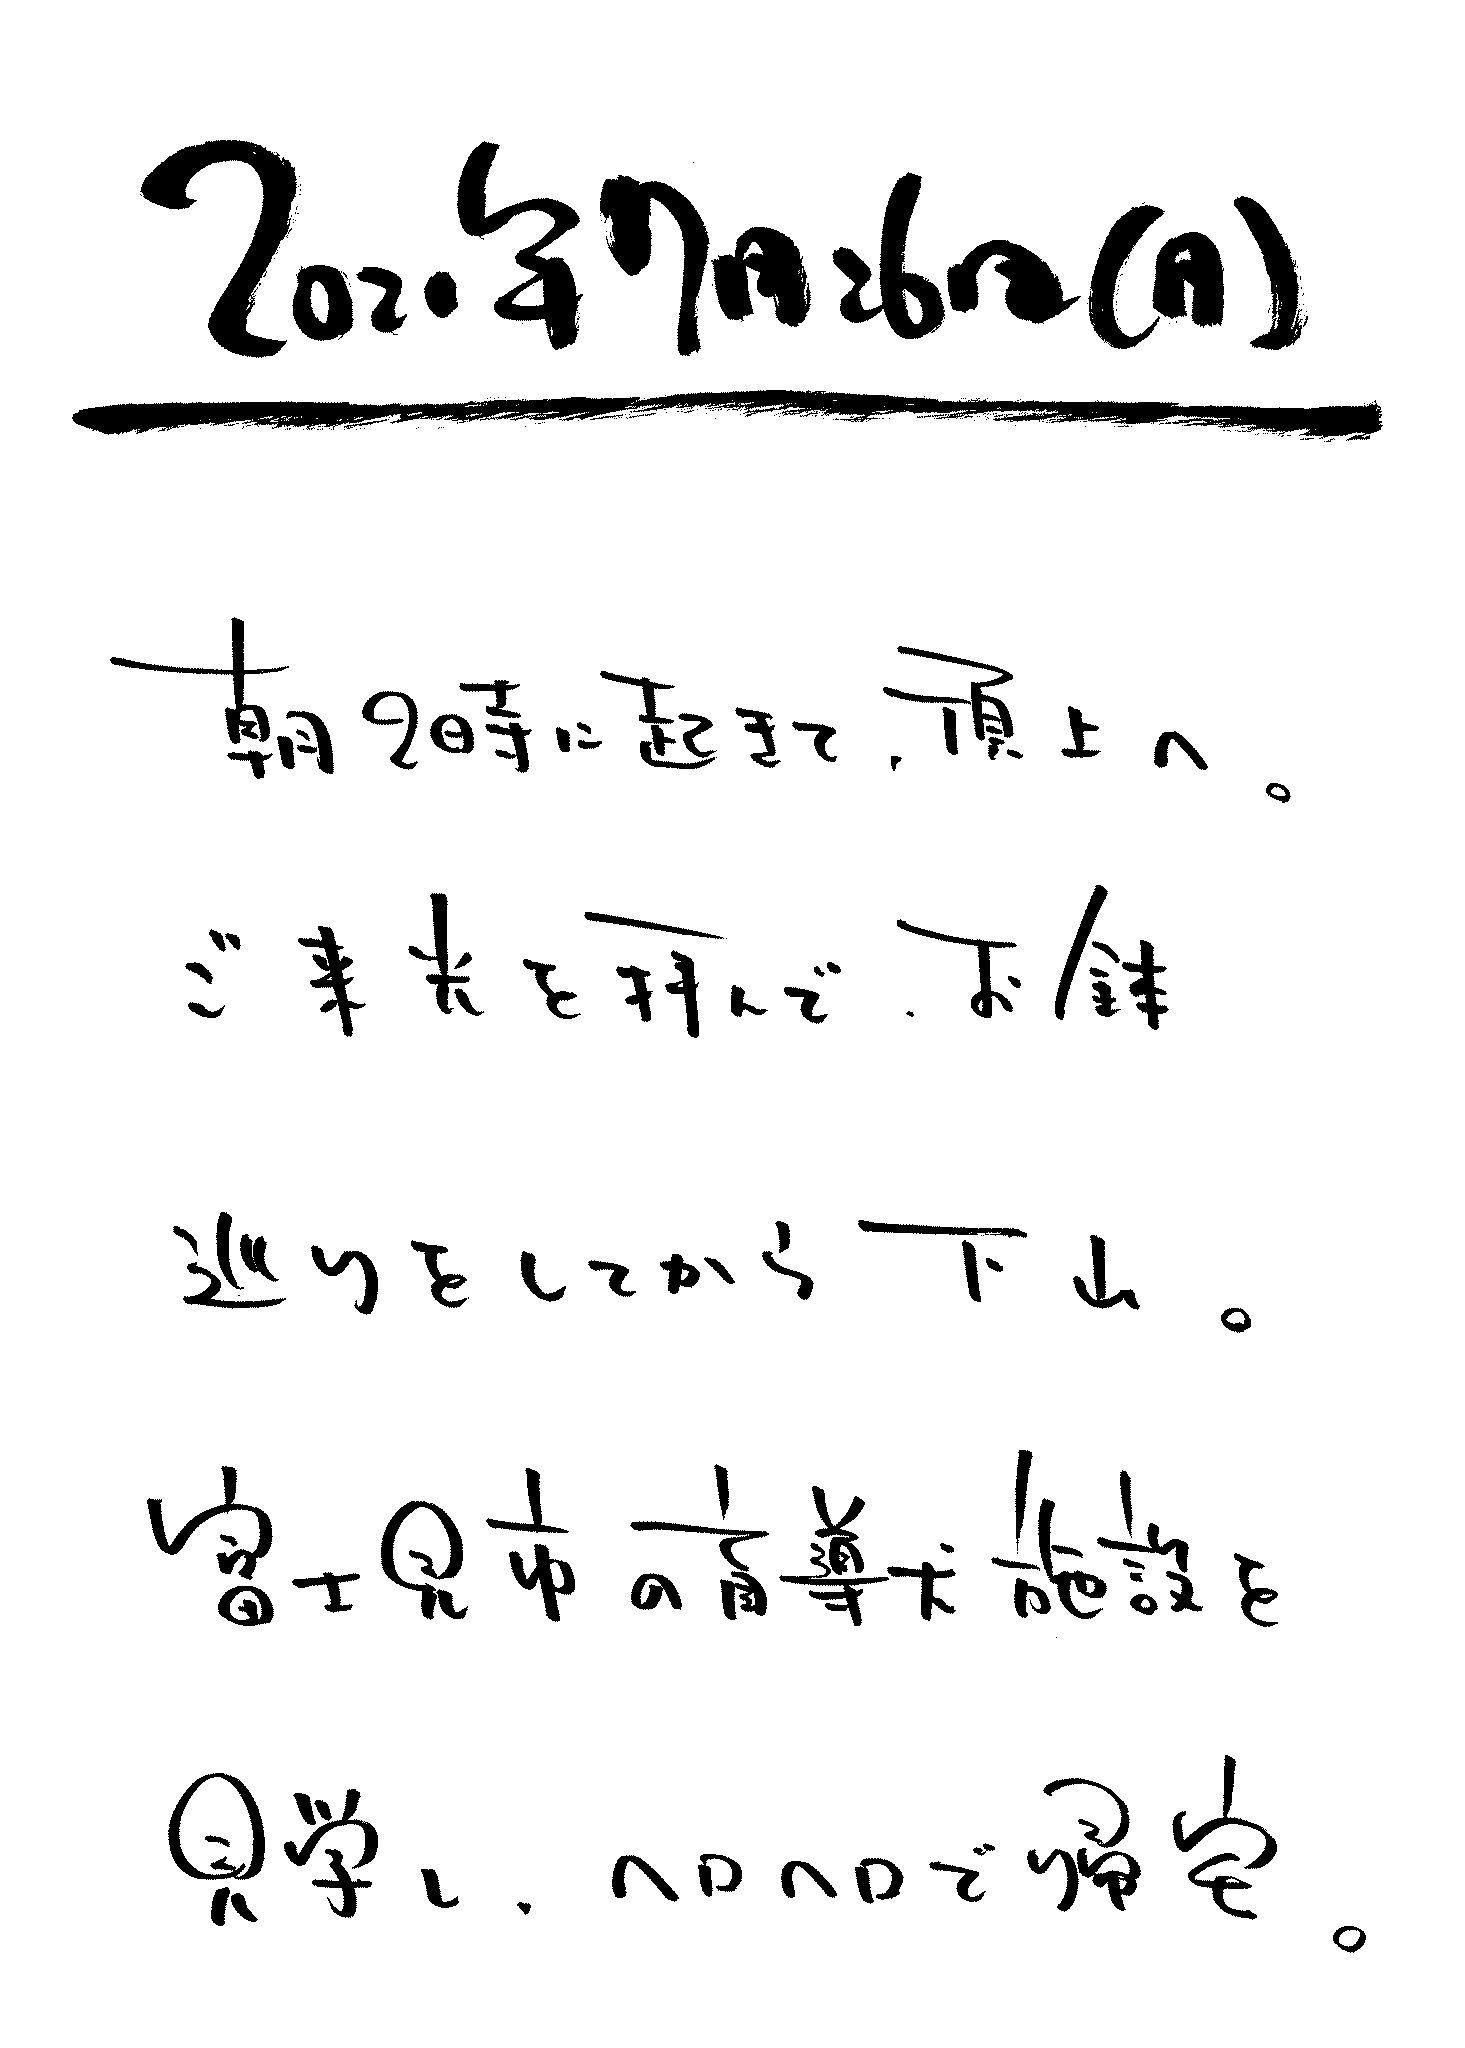 2021年7月26日(月)
朝2時に起きて、頂上へ。
ご来光を拝んで、お鉢
巡りをしてから下山。
富士見市の盲導犬施設を
見学し、ヘロヘロで帰宅。